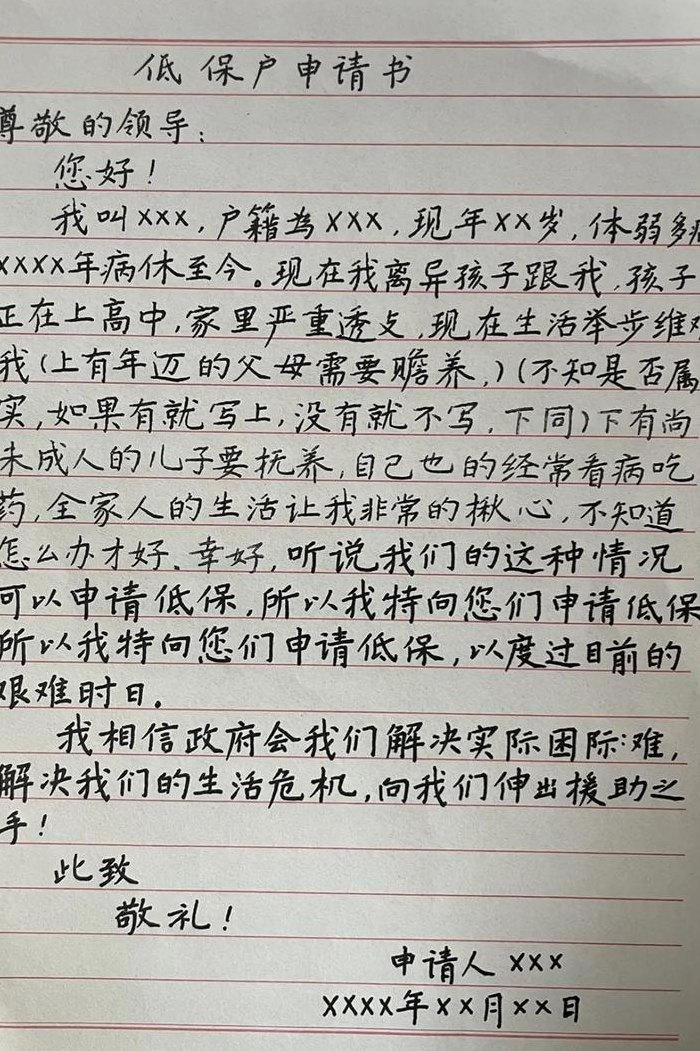 低保户申请书
尊敬的领导：
您好！
我叫xxx，户籍为xxx，现年xx岁，体弱多病
xxxx年病休至今。现在我离异孩子跟我，孩子
正在上高中，家里严重透支，现在生活举步维艰
我(上有年迈的父母需要赡养，)(不知是否属
实，如果有就写上，没有就不写，下同)下有尚
未成人的儿子要抚养，自己也的经常看病吃
药，全家人的生活让我非常的揪心，不知道
怎么办才好、幸好，听说我们的这种情况
可以申请低保，所以我特向您们申请低保
所以我特向您们申请低保，以度过目前的
艰难时日。
我相信政府会我们解决实际困际难，
解决我们的生活危机，向我们伸出援助之
手！
此致
敬礼！
申请人 xxx
xxxx年xx月xx日